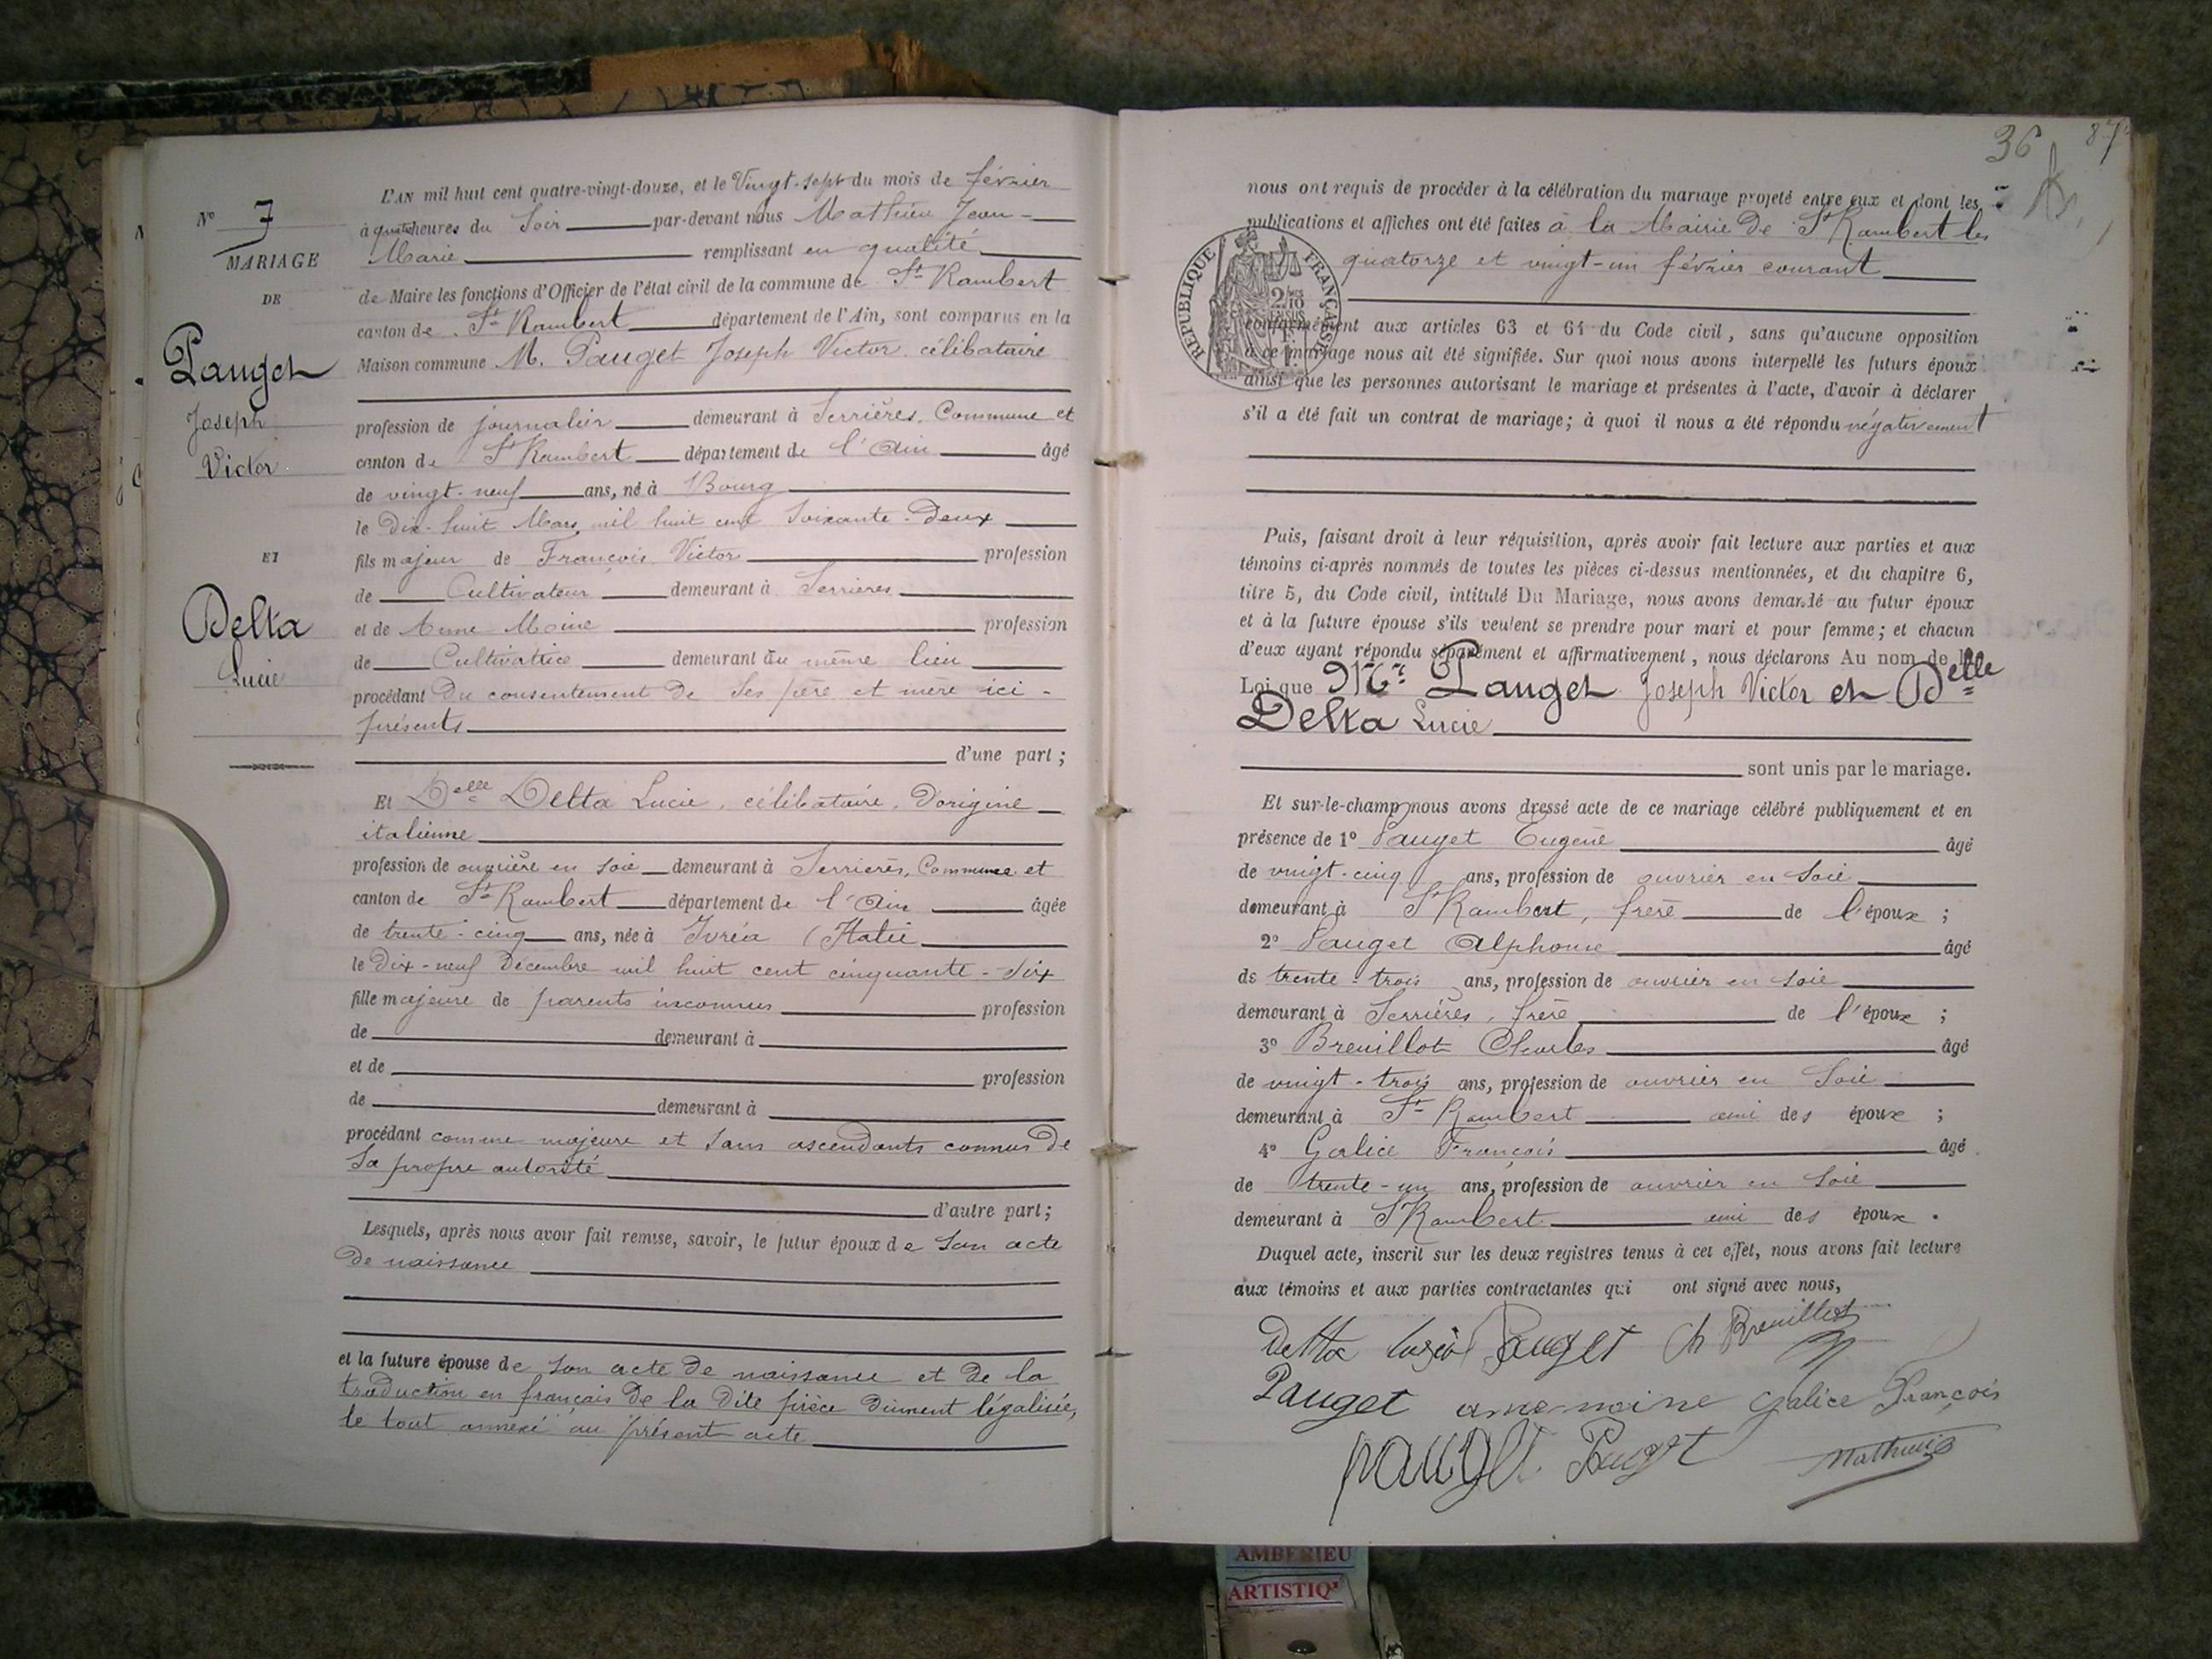 N° 7
MARIAGE
DE
Pauget
Joseph
Victor
ET
Delta
Lucie
L'AN mil huit cent quatre-vingt-douze, et le Vingt-sept du mois de février
à quatre heures du Soir par-devant nous Mathieu Jean-
Marie remplissant en qualité
de Maire les fonctions d'Officier de l'état civil de la commune de St Rambert
canton de St Rambert département de l'Ain, sont comparus en la
Maison commune M. Pauget Joseph Victor célibataire
profession de journalier demeurant à Serrières, Commune et
canton de St Rambert département de l'Ain âgé
de vingt-neuf ans, né à Bourg
le Dix-huit Mars mil huit cent soixante-Deux
fils majeur de François Victor profession
de Cultivateur demeurant à Serrières
et de Anne Moine profession
de Cultivatrice demeurant au même lieu
procédant Du consentement De Ses père et mère ici-
présents
d'une part ;
Et Delle Delta Lucie, célibataire, D'origine
italienne
profession de ouvrière en soie demeurant à Serrières, Commune et
canton de St Rambert département de l'Ain âgée
de trente-cinq ans, née à Ivréa (Italie
le Dix-neuf Décembre mil huit cent cinquante-six
fille majeure de parents inconnus profession
de demeurant à
et de profession
de demeurant à
procédant comme majeure et sans ascendants connus De
Sa propre autorité
d'autre part ;
Lesquels, après nous avoir fait remise, savoir, le futur époux de son acte
De naissance
et la future épouse de son acte De naissance et De la
traduction en français De la Dite pièce Dûment légalisée,
le tout annexé au présent acte
36 87
nous ont requis de procéder à la célébration du mariage projeté entre eux et dont les
publications et affiches ont été faites à la Mairie De St Rambert les
quatorze et vingt-un février courant
RÉPUBLIQUE FRANÇAISE
2/10
EN SUS
conformément aux articles 63 et 64 du Code civil, sans qu'aucune opposition
à ce mariage nous ait été signifiée. Sur quoi nous avons interpellé les futurs époux
ainsi que les personnes autorisant le mariage et présentes à l'acte, d'avoir à déclarer
s'il a été fait un contrat de mariage ; à quoi il nous a été répondu négativement
Puis, faisant droit à leur réquisition, après avoir fait lecture aux parties et aux
témoins ci-après nommés de toutes les pièces ci-dessus mentionnées, et du chapitre 6,
titre 5, du Code civil, intitulé Du Mariage, nous avons demandé au futur époux
et à la future épouse s'ils veulent se prendre pour mari et pour femme ; et chacun
d'eux ayant répondu séparément et affirmativement, nous déclarons Au nom de la
Loi que Mr Pauget Joseph Victor et Delle
Delta Lucie
sont unis par le mariage.
Et sur-le-champ nous avons dressé acte de ce mariage célébré publiquement et en
présence de 1° Pauget Eugène âgé
de vingt-cinq ans, profession de ouvrier en soie
demeurant à St Rambert, frère de l'époux ;
2° Pauget Alphonse âgé
de trente-trois ans, profession de ouvrier en soie
demeurant à Serrières, frère de l'époux ;
3° Breuillot Charles âgé
de vingt-trois ans, profession de ouvrier en Soie
demeurant à St Rambert ami des époux ;
4° Galice François âgé
de trente-un ans, profession de ouvrier en Soie
demeurant à St Rambert ami des époux .
Duquel acte, inscrit sur les deux registres tenus à cet effet, nous avons fait lecture
aux témoins et aux parties contractantes qui ont signé avec nous,
Pauget Ch Breuillot
Pauget Galice François
pauget Pauget Mathieu
AMBERIEU
ARTISTIQ